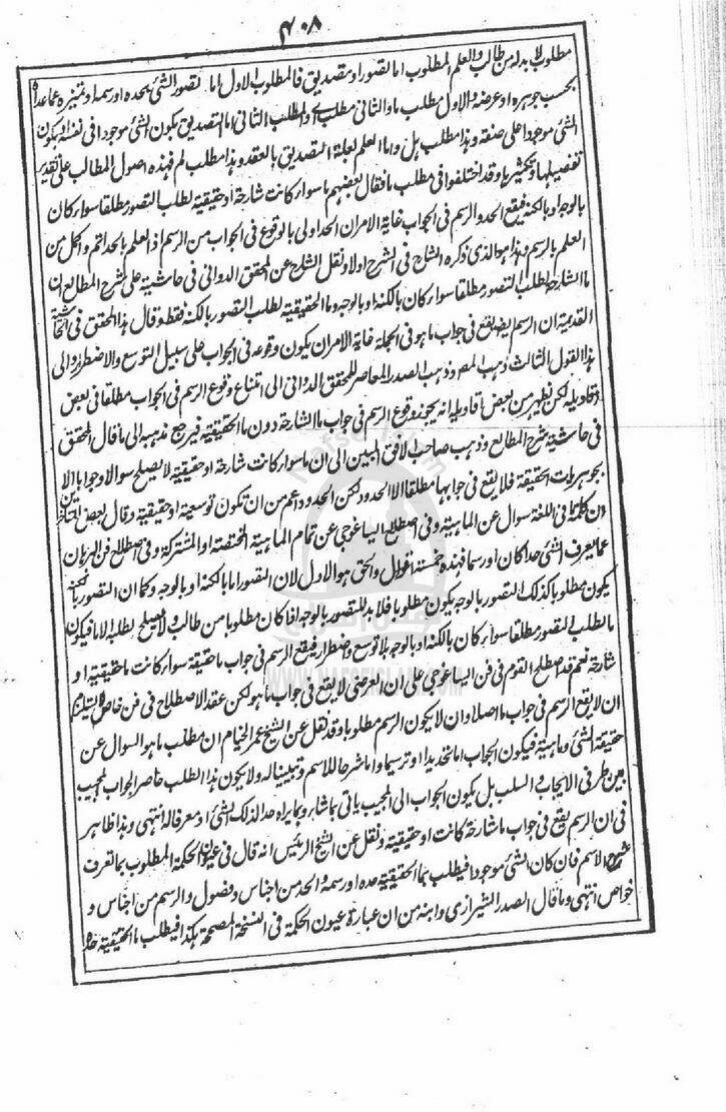 ٤٠٨
مطلوب لا بد له من طالب والعلم المطلوب اما تصور او تصديق فالمطلوب الاول اما تصور الشئ بحده او رسمه او تميزه عما عداه
بحسب جوهره او عرضه والاول مطلب ما والثانى مطلب اى والمطلب الثانى اما التصديق بكون الشئ موجودا فى نفسه او بكون
الشئ موجودا على صفة وهذا مطلب هل واما العلم لعلة التصديق بالعقد وهذا مطلب لم فهذه اصول المطالب على تقدير
تفصيلها وتكثيرها وقد اختلفوا فى مطلب ما فقال بعضهم ما سواء كانت شارحة او حقيقية لطلب التصور مطلقا سواء كان
بالوجه او بالكنه فيقع الحد والرسم فى الجواب غاية الامر ان الحد اولى بالوقوع فى الجواب من الرسم اذ العلم بالحد اتم واكمل من
العلم بالرسم وهذا هو الذى ذكره الشارح فى الشرح اولا ونقل الشارح عن المحقق الدوانى فى حاشيته على شرح المطالع ان
ما الشارحة لطلب التصور مطلقا سواء كان بالكنه او بالوجه وما الحقيقية لطلب التصور بالكنه فقط وقال هذا المحقق فى الحاشية
القديمة ان الرسم يقع فى جواب ما هو فى الجملة غاية الامر ان يكون وقوعه فى الجواب على سبيل التوسع والاضطرار والى
هذا القول الثالث ذهب المص وذهب الصدر المعاصر للمحقق الدوانى الى امتناع وقوع الرسم فى الجواب مطلقا فى بعض
اقاويله لكن يظهر من بعض اقاويله انه يجوز وقوع الرسم فى جواب ما الشارحة دون ما الحقيقية فيرجع مذهبه الى ما قال المحقق
فى حاشية شرح المطالع وذهب صاحب الافق المبين الى ان ما سواء كانت شارحة او حقيقية لا يصلح سوالا وجوابا الا
بجوهريات الحقيقة فلا يقع فى جوابها مطلقا الا الحدود لكن الحدود اعم من ان تكون توسعية او حقيقية وقال بعض المتاخرين
ان كلمة ما فى اللغة سوال عن الماهية وفى اصطلاح ايساغوجى عن تمام الماهية المختصة او المشتركة وفى اصطلاح فن البرهان
عما يعرف الشئ حدا كان او رسما فهذه خمسة اقوال والحق هو الاول لان التصور اما بالكنه او بالوجه وكما ان التصور بالكنه
يكون مطلوبا كذلك التصور بالوجه يكون مطلوبا فلا بد للتصور بالوجه اذا كان مطلوبا من طالب ولا يصلح لطلبه الا ما فيكون
ما لطلب التصور مطلقا سواء كان بالكنه او بالوجه بلا توسع واضطرار فيقع الرسم فى جواب ما حقيقة سواء كانت ما حقيقية او
شارحة نعم قد اصطلح القوم فى فن ايساغوجى على ان العرضى لا يقع فى جواب ما هو لكن عقد الاصطلاح فى فن خاص لا يستلزم
ان لا يقع الرسم فى جواب ما اصلا وان لا يكون الرسم مطلوبا وقد نقل عن الشيخ عمر الخيام ان مطلب ما هو السوال عن
حقيقة الشئ وماهيته فيكون الجواب اما تحديدا او ترسيما واما شرحا للاسم وتبيينا له ولا يكون هذا الطلب حاصر الجواب المجيب
بين طرفى الايجاب والسلب بل يكون الجواب الى المجيب ياتى بما شاء وبما يراه حدا لذلك الشئ او معرفا له انتهى وهذا ظاهر
فى ان الرسم يقع فى جواب ما شارحة كانت او حقيقية ونقل عن الشيخ الرئيس انه قال فى عيون الحكمة المطلوب بما تعرف
شرح الاسم فان كان الشئ موجودا فيطلب بما الحقيقية حده او رسمه والحد من اجناس وفصول والرسم من اجناس و
خواص انتهى وما قال الصدر الشيرازى وابنه من ان عبارة عيون الحكمة فى النسخة المصححة هكذا فيطلب ما الحقيقية حده